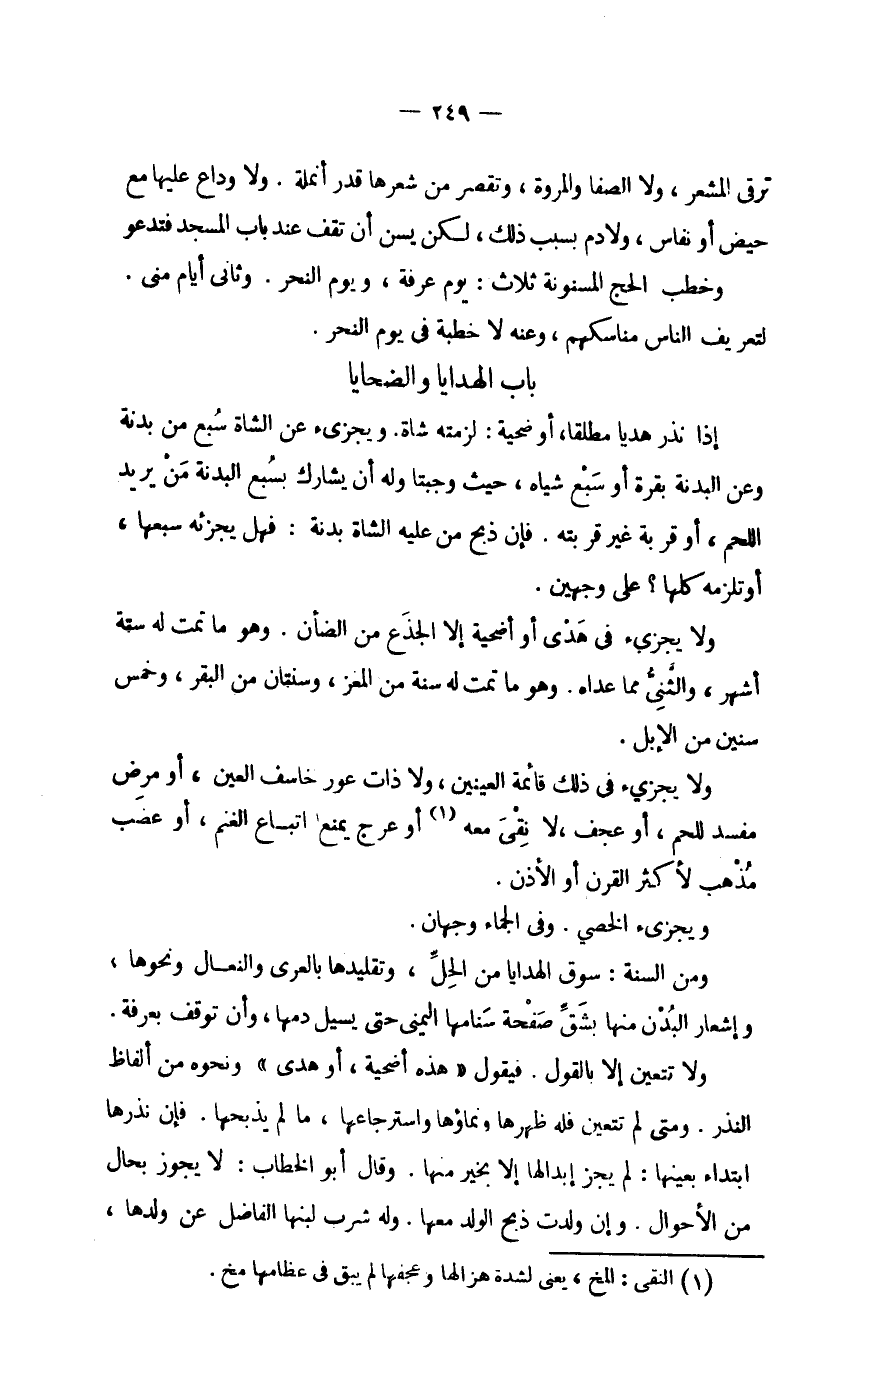 — ٢٤٩ —
ترقى المشعر ، ولا الصفا والمروة ، وتقصر من شعرها قدر أنملة . ولا وداع عليها مع
حيض أو نفاس ، ولادم بسبب ذلك ، لكن يسن أن تقف عند باب المسجد فتدعو
وخطب الحج المسنونة ثلاث : يوم عرفة ، ويوم النحر . وثانى أيام منى .
لتعريف الناس مناسكهم ، وعنه لا خطبة فى يوم النحر .
باب الهدايا والضحايا
إذا نذر هديا مطلقا، أو ضحية : لزمته شاة. ويجزىء عن الشاة سُبع من بدنة
وعن البدنة بقرة أو سَبْع شياه ، حيث وجبتا وله أن يشارك بسُبع البدنة مَنْ يريد
اللحم ، أو قربة غير قربته . فإن ذبح من عليه الشاة بدنة : فهل يجزئه سبعها ،
أوتلزمه كلها ؟ على وجهين .
ولا يجزيء فى هَدْى أو أضحية إلا الجذَع من الضأن . وهو ما تمت له ستة
أشهر ، والثَّنِىُّ مما عداه . وهو ما تمت له سنة من المعز ، وسنتان من البقر ، وخمس
سنين من الإبل .
ولا يجزيء فى ذلك قائمة العينين ، ولا ذات عور خاسف العين ، أو مرض
مفسد للحم ، أو عجف ،لا نِقْىَ معه (١) أو عرج يمنع اتباع الغنم ، أو عضَب
مُذْهب لأكثر القرن أو الأذن .
ويجزىء الخصي . وفى الجماء وجهان .
ومن السنة : سوق الهدايا من الحِلِّ ، وتقليدها بالعرى والنعال ونحوها ،
وإشعار البُدْن منها بشَقِّ صَفْحة سَنامها اليمنى حتى يسيل دمها ، وأن توقف بعرفة .
ولا تتعين إلا بالقول . فيقول « هذه أضحية ، أو هدى » ونحوه من ألفاظ
النذر . ومتى لم تتعين فله ظهرها ونماؤها واسترجاعها ، ما لم يذبحها . فإن نذرها
ابتداء بعينها : لم يجز إبدالها إلا بخير منها . وقال أبو الخطاب : لا يجوز بحال
من الأحوال . وإن ولدت ذبح الولد معها . وله شرب لبنها الفاضل عن ولدها ،
(١) النقى : المخ ، يعنى لشدة هزالها وعجفها لم يبق فى عظامها مخ .